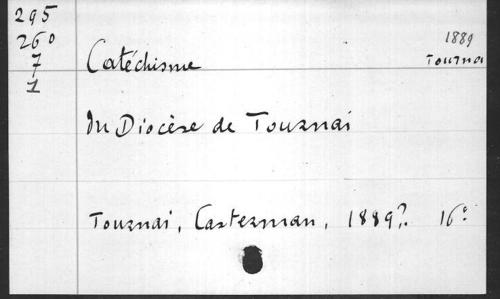 295
260
7
1
1889
Tournai
Catéchisme
du Diocèse de Tournai
Tournai, Casterman, 1889?. 16°